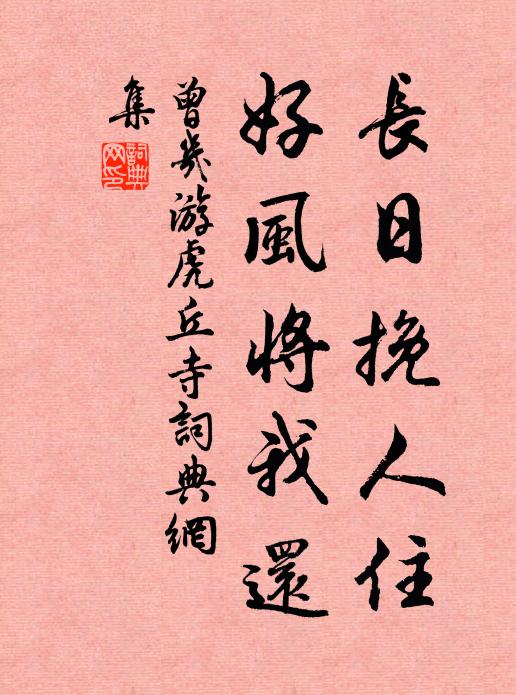 長日挽人住
好風將我還
曾幾游虎丘寺詞典網
集
詞典網印